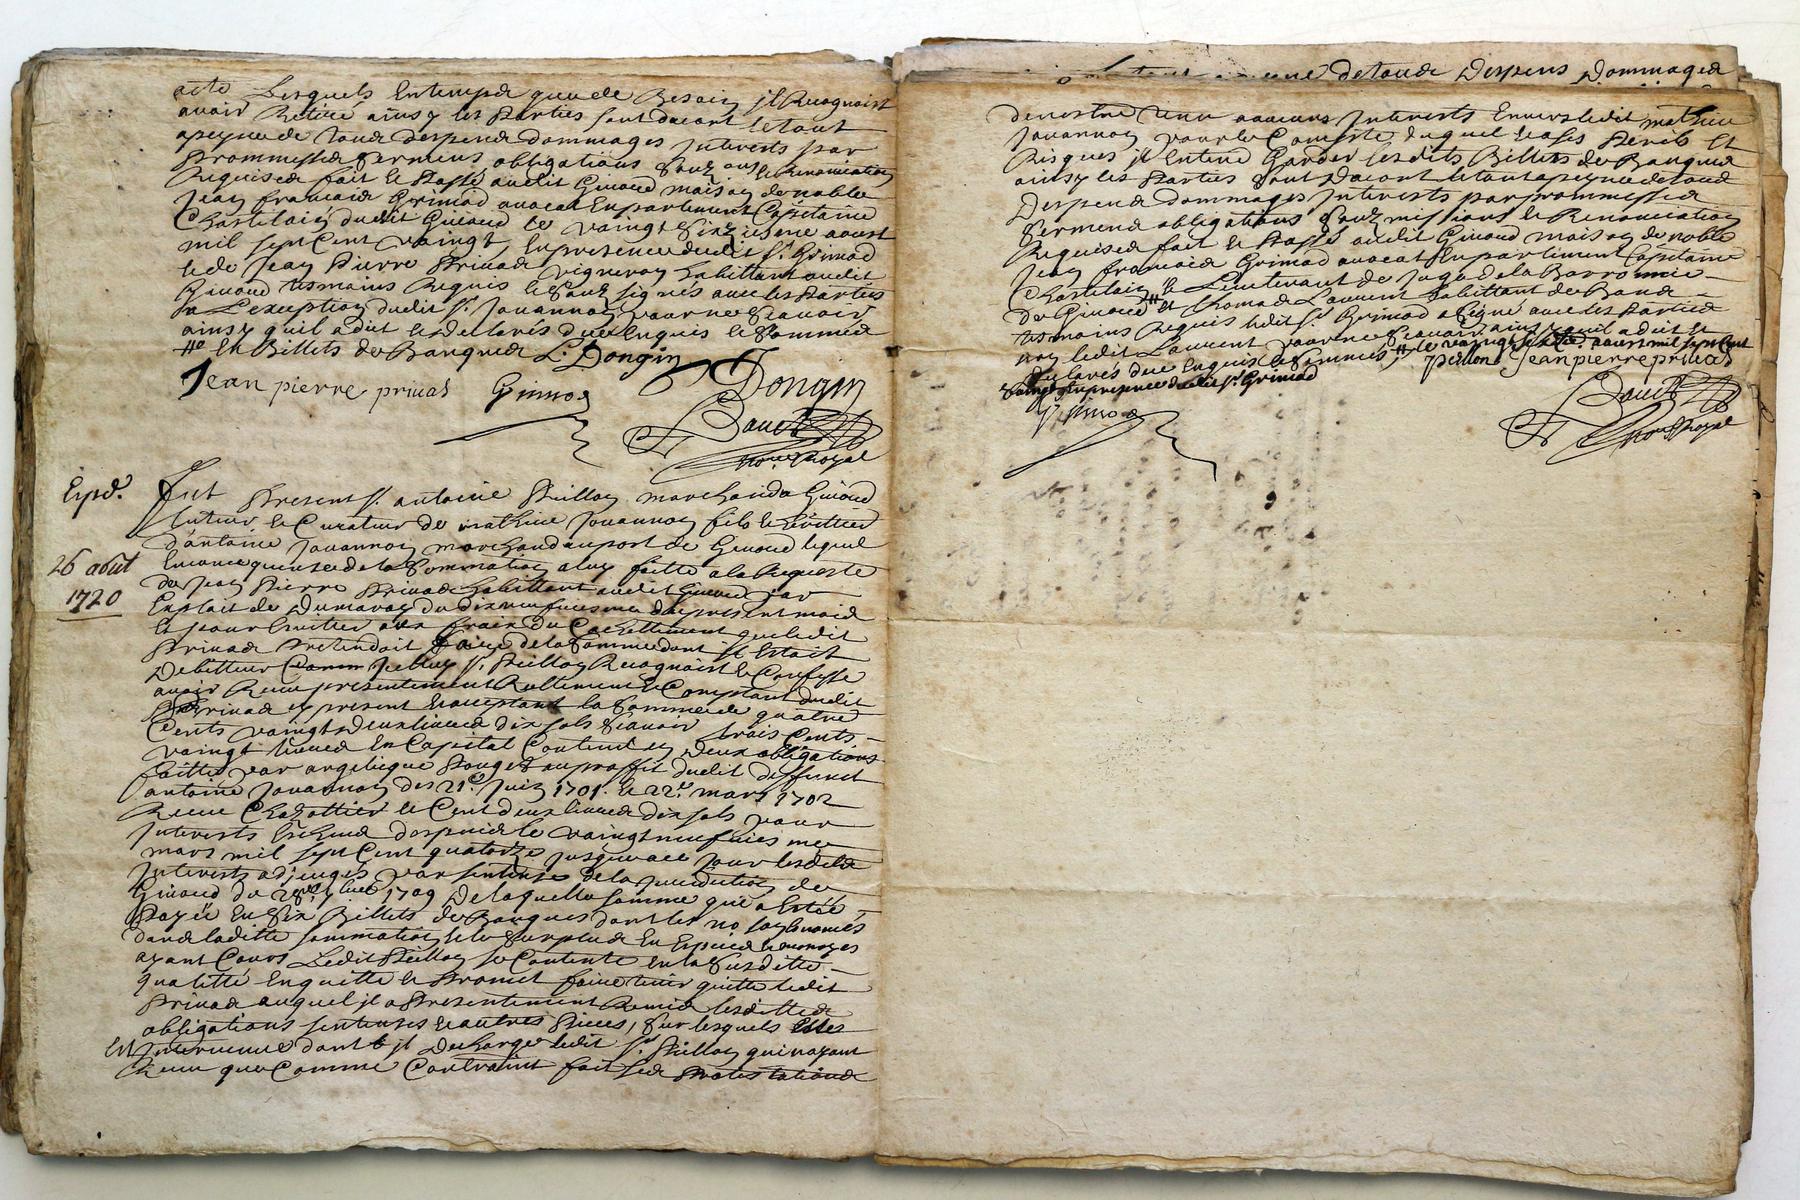 acte Lesquels en temps que de Besoin jl Recognoist
avoir Retiré ainsy les Parties sont dacort le tout
apeyne de tous despens dommages Interests par
Prommesses sermens obligations Soumissions et Renonciation
Requises fait et Passé audit Giraud maison de noble
Jean francois Grimod avocat En parlement Capitaine
Chastelain dudit Giraud le vaingt Sixiesme aoust
mil sept Cent vaingt, En presence dudit Sr. Grimod
et de Jean Pierre Privas vigneron habittant audit
Giraud tesmoins Requis et Sousignés avec les Parties
a L'exception dudit Sr. Jouannon pour ne Scavoir
ainsy quil a dit et declaré de ce Enquis et Sommé
En Billets de Banques L. Dongin
Jean pierre privas Grimod Dongin
Bouet
nore Royal
Exped.
26 août
1720
fut Present Sr. antoine Peillon marchand a Giraud
tuteur et Curateur de mathieu Jouannon fils et héritier
d'antoine Jouannon marchand au port de Giraud lequel
En consequence de la Sommation a luy faitte a la Requeste
de Jean Pierre Privas habittant audit Giraud par
Exploit de Dumaray du dixneufviesme du present mois
Et pour Eviter aux fraix du Cachettement que ledit
Privas Pretendoit faire de la Somme dont jl Estoit
Debitteur Jcelluy Sr. Peillon Recognoist et Confesse
avoir Receu presentement Reellement et Comptant dudit
Privas cy present et acceptant la Somme de quatre
Cents vaingt deux livres dix sols Scavoir trois Cents
vaingt livres En Capital Contenu en deux obligations
faittes par angelicque Rouget au proffit dudit deffunct
antoine Jouannon des 21e. Juin 1701. et 22e. mars 1702
Receu Chazottier et Cent deux livres dix sols pour
Interests Escheus despuis le vaingt neufviesme
mars mil sept Cent quatorze jusques a ce jour lesdits
Interests adjeugés par sentense de la juridiction de
Giraud du 1709 De laquelle somme qui a Estée
Payée En Six Billets de Banques dont les no. sont Enoncés
dans laditte sommation et le Surplus En Especes et monoyes
ayant Cours Ledit Peillon se Contente En la Susditte
qualitté En quitte et Promet faire tenir quitte ledit
Privas auquel jl a Presentement Remis lesdittes
obligations sentenses et autres Pieces, Sur lesquels Elles
Est Intervenue dont jl descharge ledit Sr. Peillon qui n'ayant
Receu que Comme Contraint fait ses Protestations
de tous Despens Dommages
de nostre aucuns Interests Envers ledit mathieu
Jouannon pour le Compte duquel et a ses Perils Et
Risques jl Entend Garder lesdits Billets de Banques
ainsy les Parties sont Dacort le tout a peyne de tous
Despens dommages Interests par prommesses
sermens obligations Soumissions et Renonciation
Requises fait et Passé audit Giraud maison de noble
Jean francois Grimod avocat En parlement Capitaine
Chastelain et Lieutenant de Juge de la Barronnie
de Giraud et Thomas Laurent habittant de
tesmoins Requis ledit Sr. Grimod a Signé avec les Parties
non ledit Laurent pour ne Scavoir ainsy quil a dit et
declaré de ce Enquis et Sommé, le vaingt sixie. aoust mil sept Cent
vaingt En presence dudit Sr. Grimod peillon Jean pierre privas
Grimod
Bouet
nore Royal